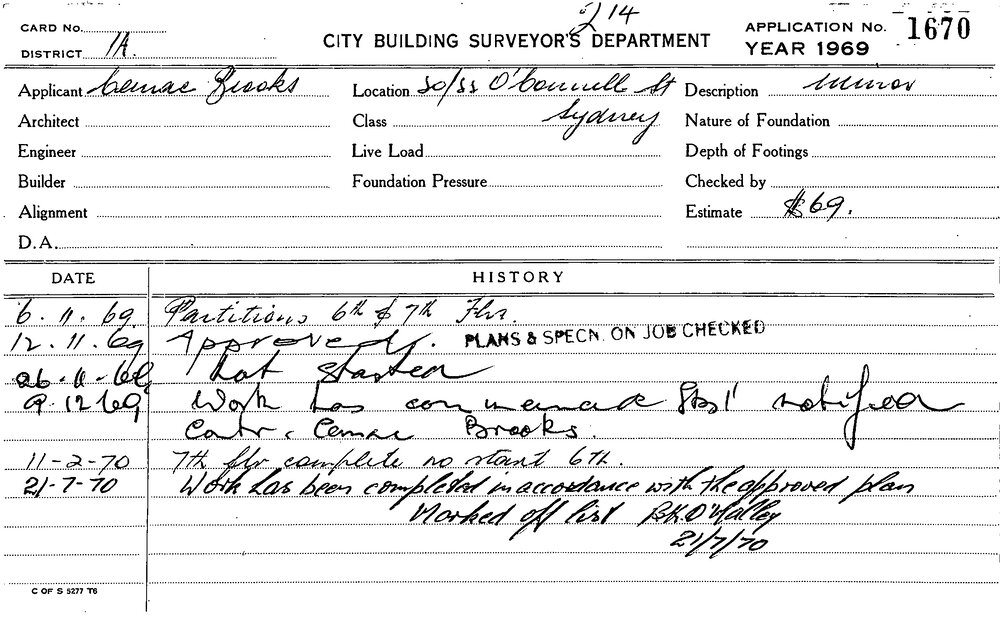 214
CARD No.
DISTRICT 1A
CITY BUILDING SURVEYOR'S DEPARTMENT
APPLICATION No. 1670
YEAR 1969
Applicant Cemac Brooks
Location 50/52 O'Connell St
Sydney
Description minor
Architect
Class
Nature of Foundation
Engineer
Live Load
Depth of Footings
Builder
Foundation Pressure
Checked by
Alignment
Estimate $69.
D.A.
DATE HISTORY
6.11.69. Partitions 6th & 7th Flrs.
12.11.69 Approved. PLANS & SPECN. ON JOB CHECKED
26.11.69 Not Started
9.12.69 Work has commenced notified
Contr. Cemac Brooks.
11-2-70 7th flr complete no start 6th.
21-7-70 Work has been completed in accordance with the approved plan
Marked off list B.K. O'Malley
21/7/70
C OF S 5277 T6